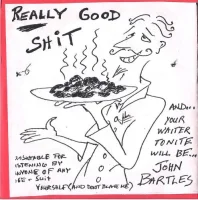 REALLY GOOD
SHIT
AND...
YOUR
WAITER
TONITE
WILL BE...
JOHN
BARTLES
UNSUITABLE FOR
LISTENING BY
ANYONE OF ANY
AGE - SUIT
YOURSELF (AND DON'T BLAME ME)